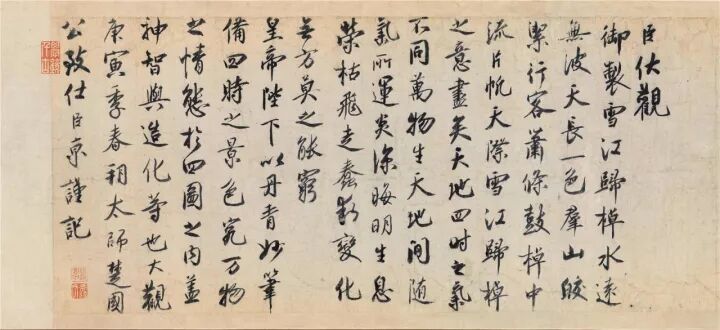 臣伏觀
御製雪江歸棹水遠
無波天長一色羣山皎
潔行客蕭條鼓棹中
流片帆天際雪江歸棹
之意盡矣天地四時之氣
不同萬物生天地間隨
氣所運炎涼晦明生息
榮枯飛走蠢動變化
無方莫之能窮
皇帝陛下以丹青妙筆
備四時之景色究万物
之情態於四圖之内蓋
神智與造化等也大觀
庚寅季春朔太師楚國
公致仕臣京謹記